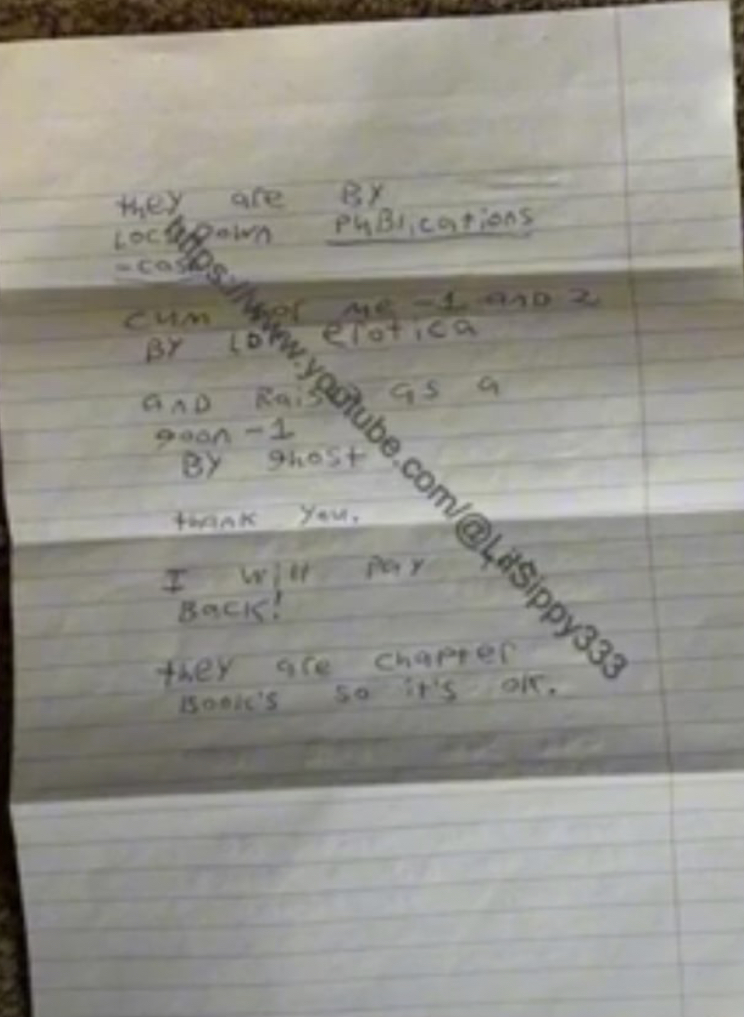 they are BY
LOCKDOWN PuBlications
-cash
cum for me -1 and 2
BY LDP erotica
anD Raised as a
goon -1
BY ghost
thank you.
I will pay
Back!
they are chapter
Book's so it's ok.
https://www.youtube.com/@LilSippy333